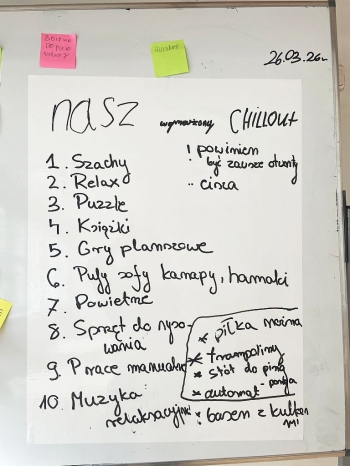 26.03.26r
nasz wymarzony CHILLOUT
! powinien
być zawsze otwarty
cisza
1. Szachy
2. Relax
3. Puzzle
4. Książki
5. Gry planszowe
6. Pufy sofy kanapy, hamaki
7. Powietrze
8. Sprzęt do ryso-
wania
9. Prace manualne
10. Muzyka
relaksacyjna
* piłka nożna
* trampoliny
* stół do ping-
ponga
* automat
! basen z kulkami